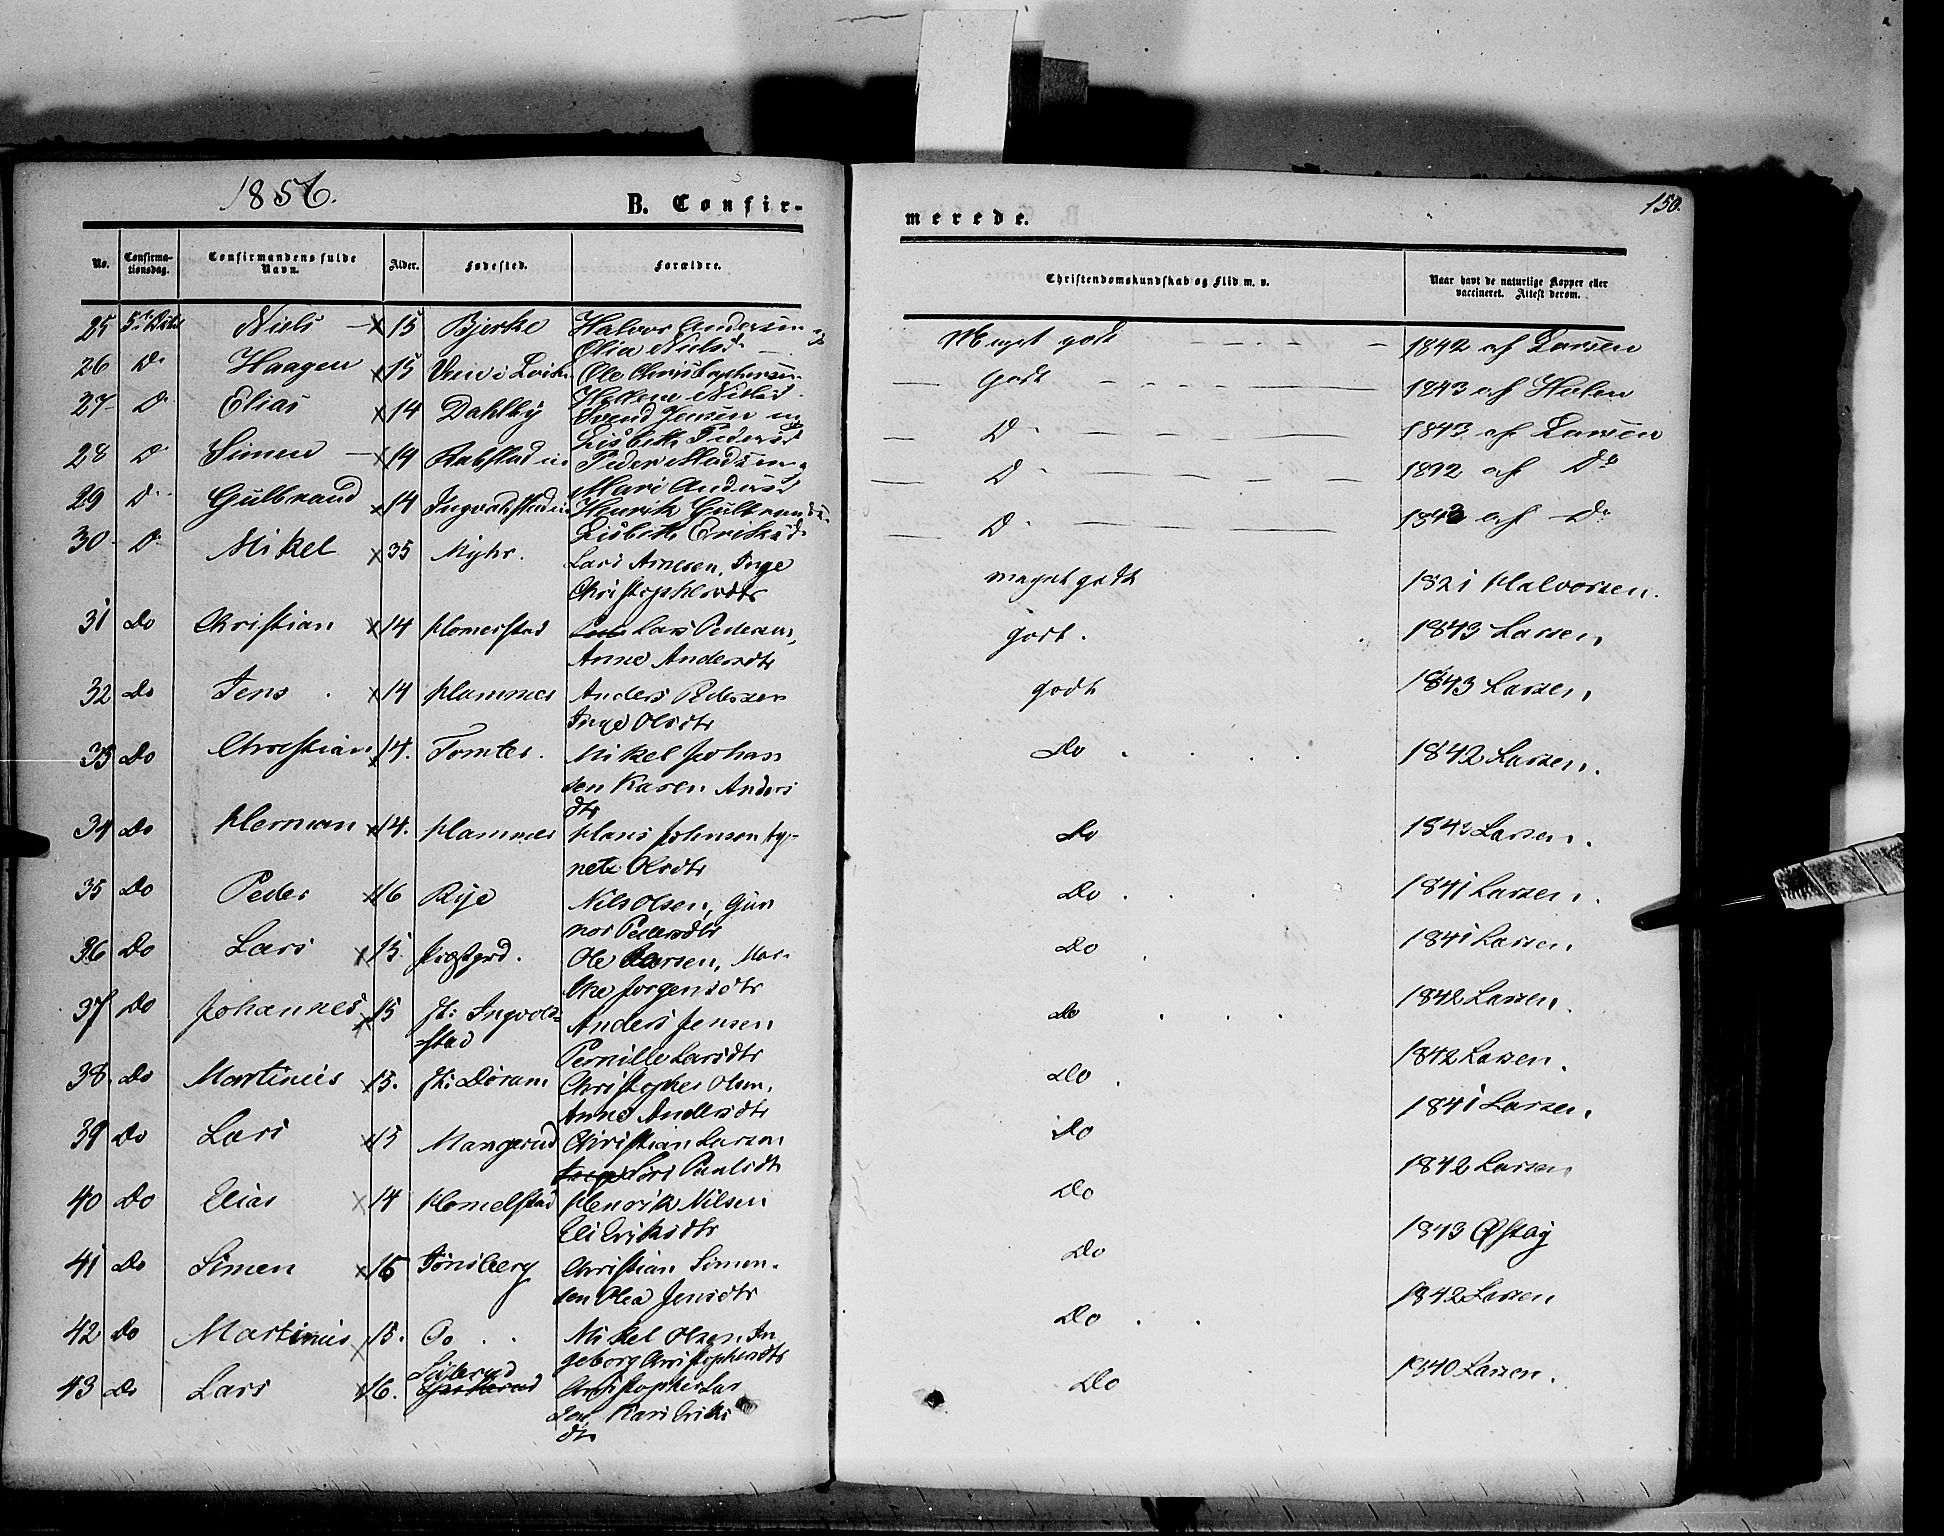 1856.
B. Confir-
merede.
150.
No. Confirma-tionsdag. Confirmandens fulde Navn. Alder. Fødested. Forældre. Christendomskundskab og Flid m. v. Naar havt de naturlige Kopper eller vaccineret. Attest derom.
25 Niels 15 Bjerke Halvor Andersen Meget godt 1842 af Larsen
Olia Nielsd.
26 Do Haagen 15 Ole Christophersen Godt 1843 af Holen
Hellene Nielsd.
27 Do Elias 14 Dahlby Svend Jensen Do 1843 af Larsen
Lisbeth Pedersd
28 Do Simen 14 Peder Madsen Do 1842 af Do
Mari Andersd
29 Do Gulbrand 14 Henrik Gulbrands. Do 1843 af Do
Lisbeth Eriksd.
30 Do Mikel 35 Myhr. Lars Arnesen, Inge meget godt 1821 Halvorsen.
Christophersdtr
31 Do Christian 14 Homerstad Lars Pedersen, godt. 1843 Larsen,
Anne Andersdtr
32 Do Jens 14 Hammer Anders Pedersen godt 1843 Larsen,
Inge Olsdtr
33 Do Christian 14. Tomter. Mikel Johan Do 1842 Larsen.
sen Karen Anders
dtr
34 Do Herman 14. Hammer Hans Johnson Ag- Do 1843 Larsen.
nete Olsdtr
35 Do Peder 16 Rye Nils Olsen, Gun Do 1841 Larsen.
nor Pedersdtr
36 Do Lars 15 Præstgrd. Ole Larsen, Mar- Do 1841 Larsen
the Jørgensdtr
37 Do Johannes 15 Ingvold- Anders Jensen Do 1842 Larsen.
stad Pernille Larsdtr
38 Do Martinius 15. Christopher Olsen, Do 1842 Larsen.
Anne Andersdtr
39 Do Lars 15 Mangerud Christian Larsen Do 1841 Larsen.
Siri Paulsdtr
40 Do Elias 14 Homelstad Henrik Nilsen Do 1842 Larsen
Eli Eriksdtr
41 Do Simen 15 Tønsberg Christian Simen- Do 1843 Østby
sen Olea Jensdtr
42 Do Martinius 15. Do Mikel Olsen In Do 1842 Larsen
geborg Christophersdtr
43 Do Lars 16. Christopher Lar Do 1840 Larsen.
sen Kari Eriks
dtr